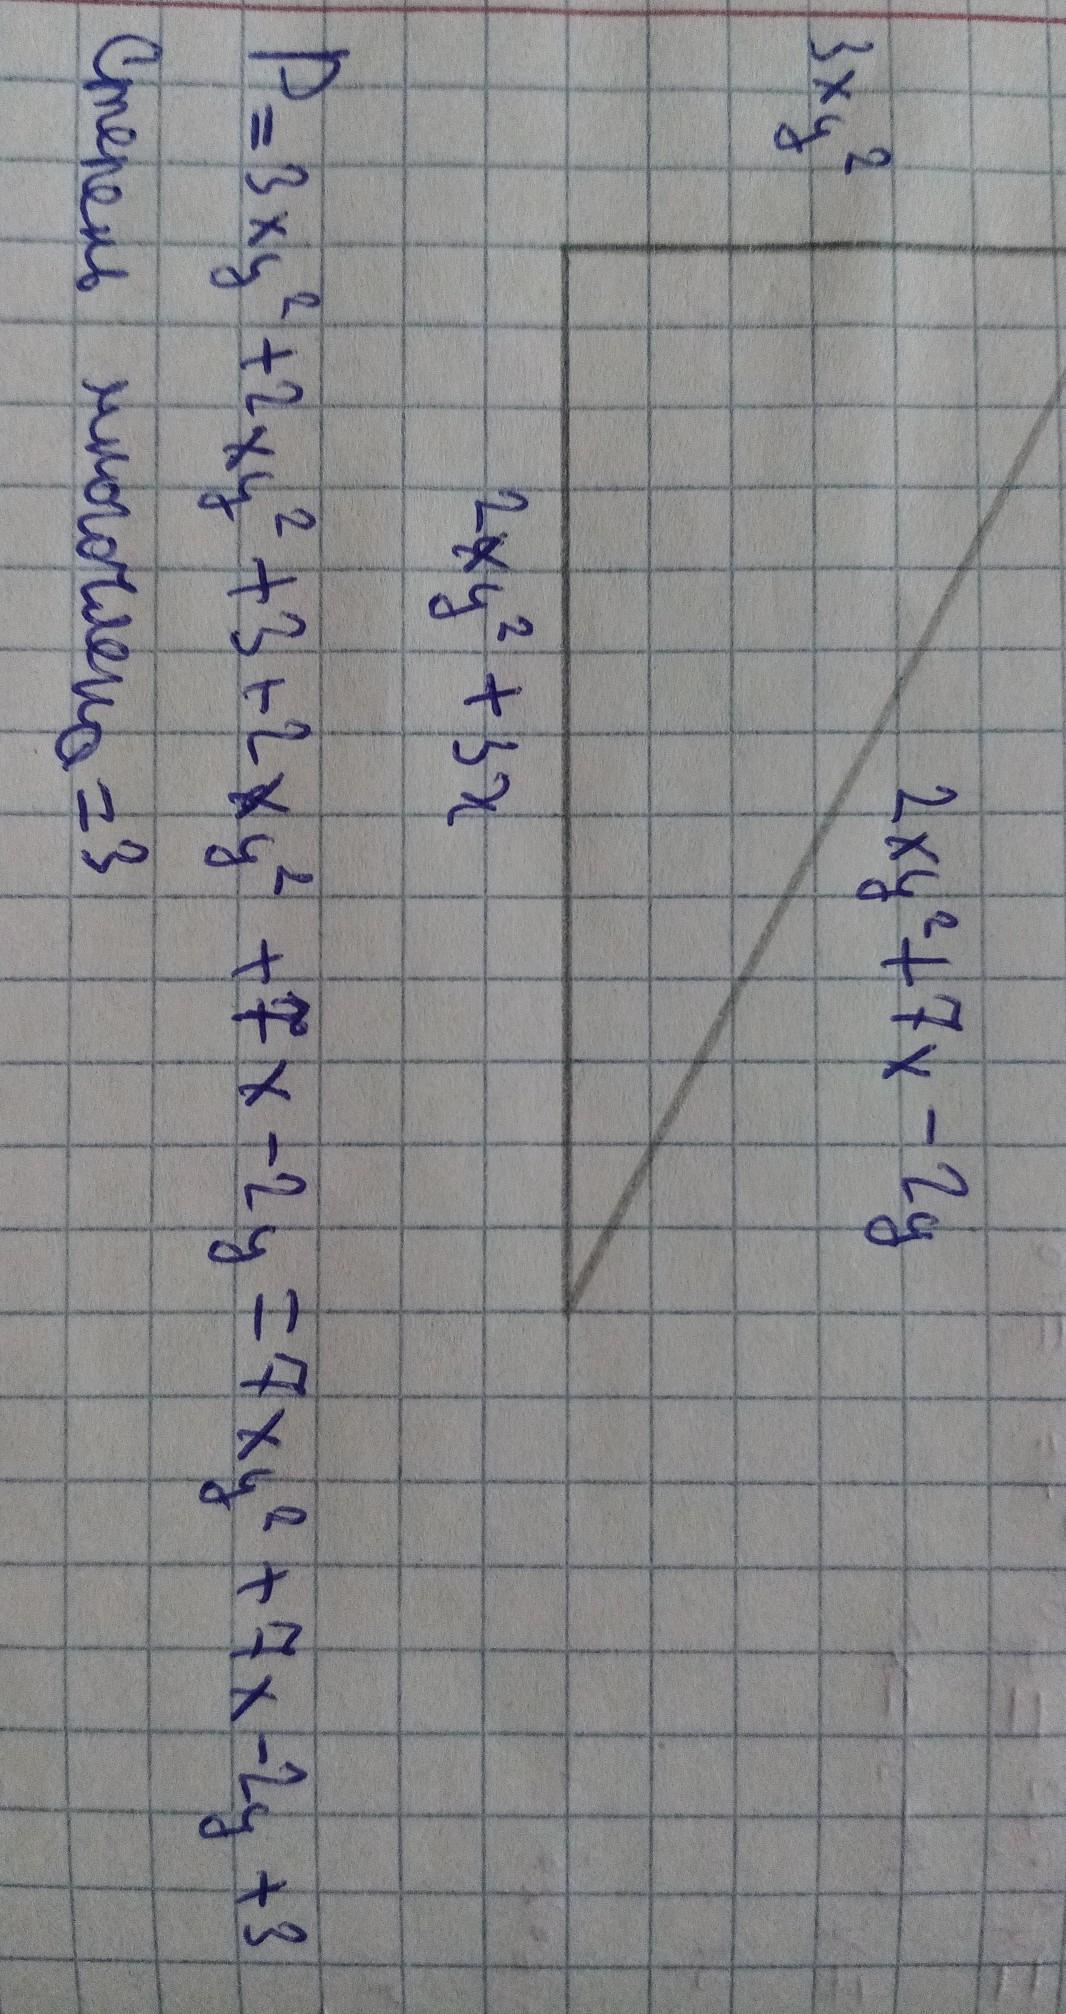 3xy²
2xy²+7x-2y
2xy²+3x
P=3xy²+2xy²+3+2xy²+7x-2y=7xy²+7x-2y+3
Степень многочлена=3